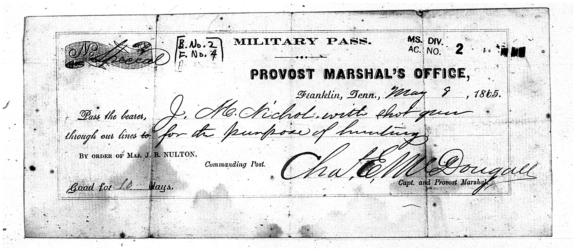 No. Special
B. No. 2
F. No. 4
MILITARY PASS.
MS. DIV.
AC. NO. 2
PROVOST MARSHAL'S OFFICE,
Franklin, Tenn., May 9, 1865.
Pass the bearer, J. McNichol with shot gun
through our lines to for the purpose of hunting
BY ORDER OF MAJ. J. R. NULTON.
Commanding Post.
Chas. E. McDougall
Capt. and Provost Marshal.
Good for 10 days.